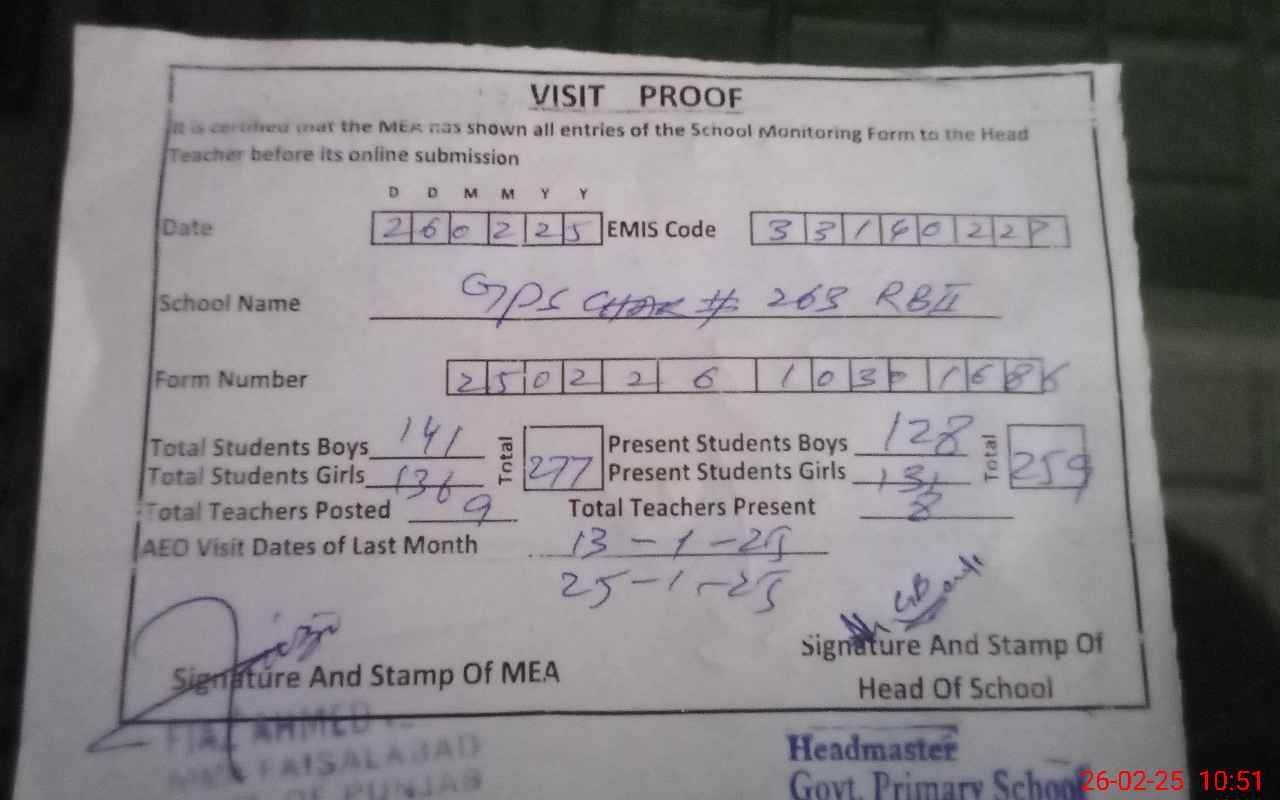 VISIT PROOF
It is certified that the MEA has shown all entries of the School Monitoring Form to the Head
Teacher before its online submission
D D M M Y Y
Date 2 6 0 2 2 5 EMIS Code 3 3 1 4 0 2 2 7
School Name GPS CHAK # 263 RB II
Form Number 2 5 0 2 2 6 1 0 3 0 1 6 8 6
Total Students Boys 141 Total 277 Present Students Boys 128 Total 259
Total Students Girls 136 Present Students Girls 131
Total Teachers Posted 9 Total Teachers Present 8
AEO Visit Dates of Last Month 13-1-25
25-1-25
Signature And Stamp Of MEA
Signature And Stamp Of
Head Of School
AHMED
FAISALABAD
OF PUNJAB
Headmaster
Govt. Primary School
26-02-25 10:51